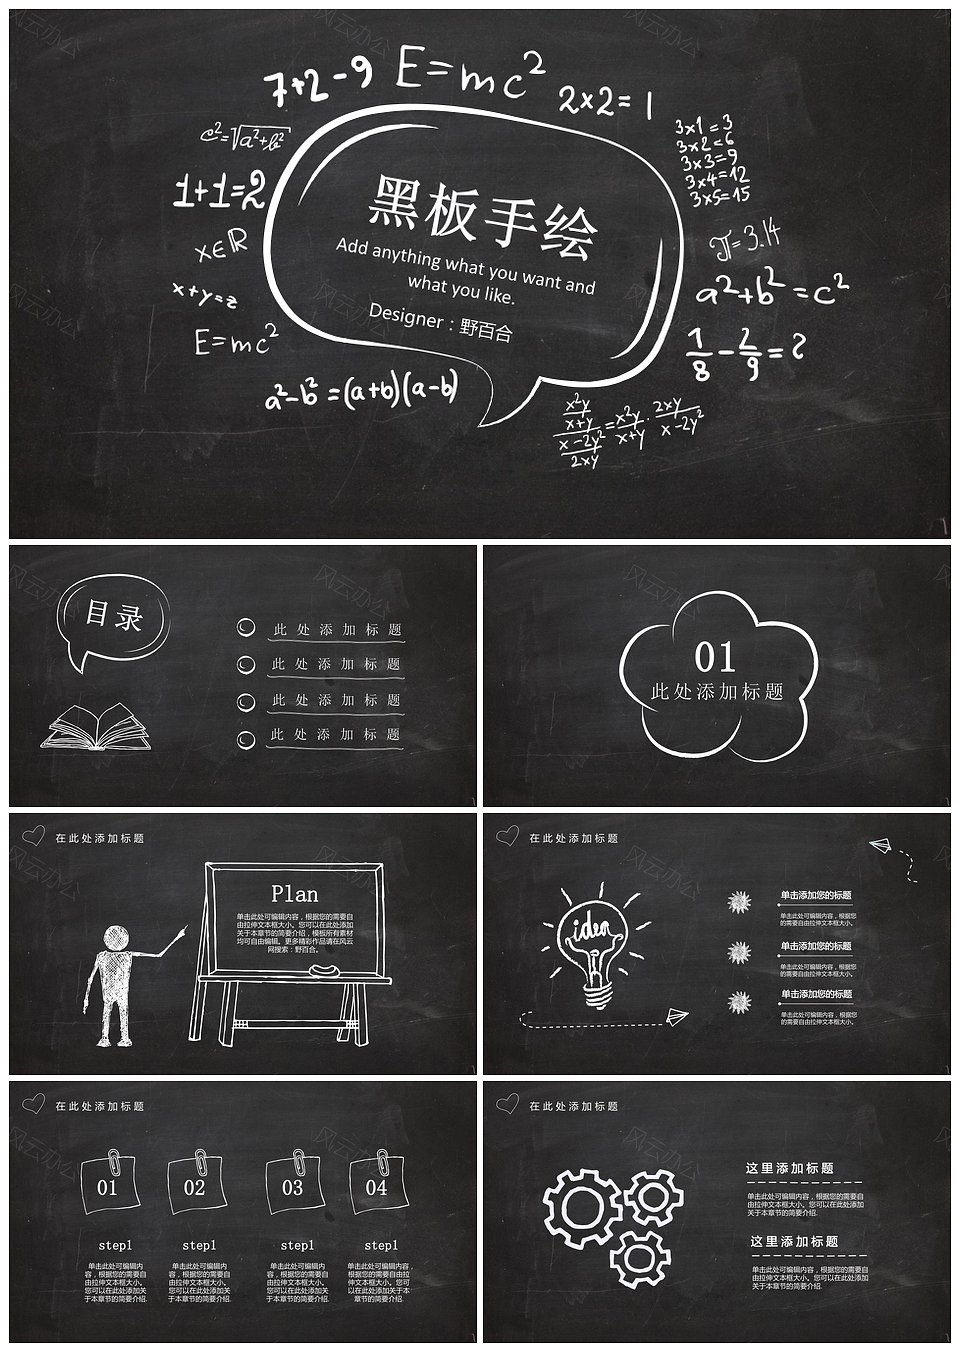 7+2-9
E=mc²
2×2=1
c²=√a²+b²
1+1=2
x∈ℝ
x+y=z
E=mc²
a²-b²=(a+b)(a-b)
3×1=3
3×2=6
3×3=9
3×4=12
3×5=15
π=3.14
a²+b²=c²
1/8-2/9=?
x²y/x+y / x-2y²/2xy = x²y/x+y · 2xy/x-2y²
黑板手绘
Add anything what you want and
what you like.
Designer：野百合
目录
此处添加标题
此处添加标题
此处添加标题
此处添加标题
01
此处添加标题
在此处添加标题
Plan
单击此处可编辑内容，根据您的需要自
由拉伸文本框大小。您可以在此处添加
关于本章节的简要介绍，模板所有素材
均可自由编辑。更多精彩作品请在风云
网搜索：野百合。
在此处添加标题
idea
单击添加您的标题
单击此处可编辑内容，根据您
的需要自由拉伸文本框大小。
单击添加您的标题
单击此处可编辑内容，根据您
的需要自由拉伸文本框大小。
单击添加您的标题
单击此处可编辑内容，根据您
的需要自由拉伸文本框大小。
在此处添加标题
01
02
03
04
step1
step1
step1
step1
单击此处可编辑内
容，根据您的需要自
由拉伸文本框大小。
您可以在此处添加关
于本章节的简要介绍.
单击此处可编辑内
容，根据您的需要自
由拉伸文本框大小。
您可以在此处添加关
于本章节的简要介绍.
单击此处可编辑内
容，根据您的需要自
由拉伸文本框大小。
您可以在此处添加关
于本章节的简要介绍.
单击此处可编辑内
容，根据您的需要自由拉
伸文本框大小。您可
以在此处添加关于本
章节的简要介绍.
在此处添加标题
这里添加标题
单击此处可编辑内容，根据您的需要自
由拉伸文本框大小。您可以在此处添加
关于本章节的简要介绍.
这里添加标题
单击此处可编辑内容，根据您的需要自
由拉伸文本框大小。您可以在此处添加
关于本章节的简要介绍.
风云办公